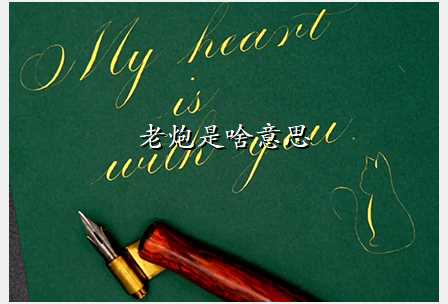 My heart
is
老炮是啥意思
with you.